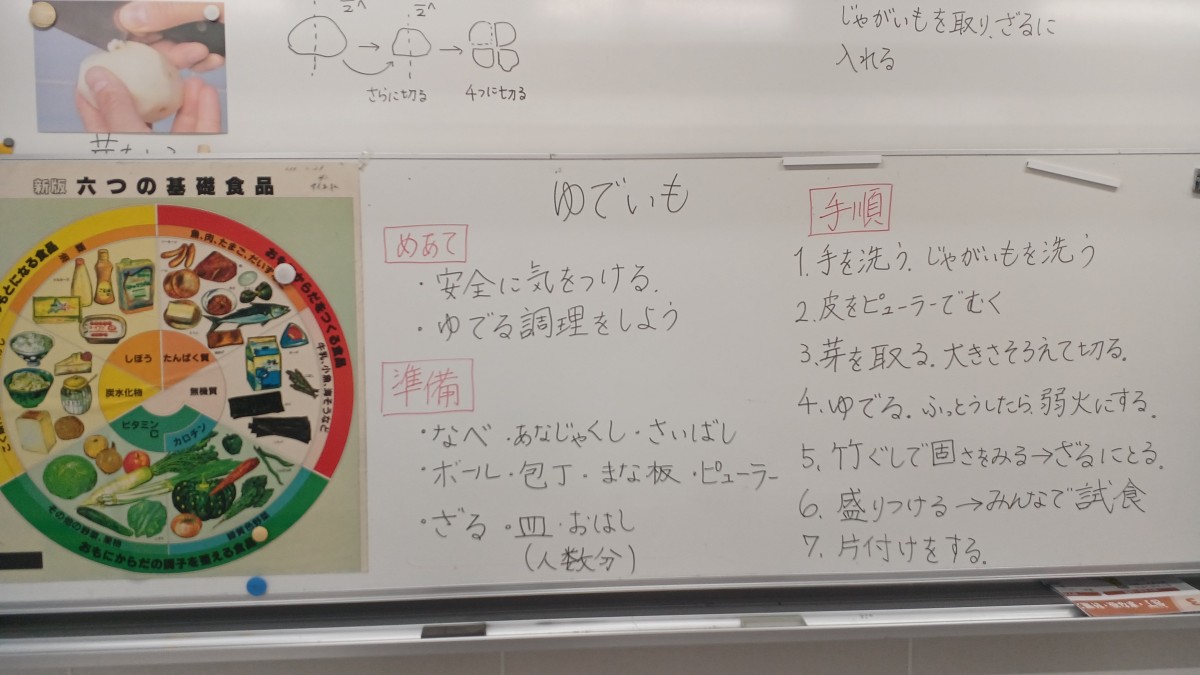 さらに切る
4つに切る
じゃがいもを取り、ざるに
入れる
新版 六つの基礎食品
魚、肉、たまご、だいず
からだをつくる食品
牛乳、小魚、海そうなど
もとになる食品
油類
しぼう
たんぱく質
炭水化物
無機質
ビタミンC
カロチン
その他の野菜、果物
緑黄色野菜
おもにからだの調子を整える食品
ゆでいも
めあて
・安全に気をつける.
・ゆでる調理をしよう
準備
・なべ・あなじゃくし・さいばし
・ボール・包丁・まな板・ピューラー
・ざる・皿・おはし
(人数分)
手順
1. 手を洗う. じゃがいもを洗う
2. 皮をピューラーでむく
3. 芽を取る. 大きさそろえて切る.
4. ゆでる. ふっとうしたら、弱火にする.
5. 竹ぐしで固さをみる→ざるにとる.
6. 盛りつける→みんなで試食
7. 片付けをする.